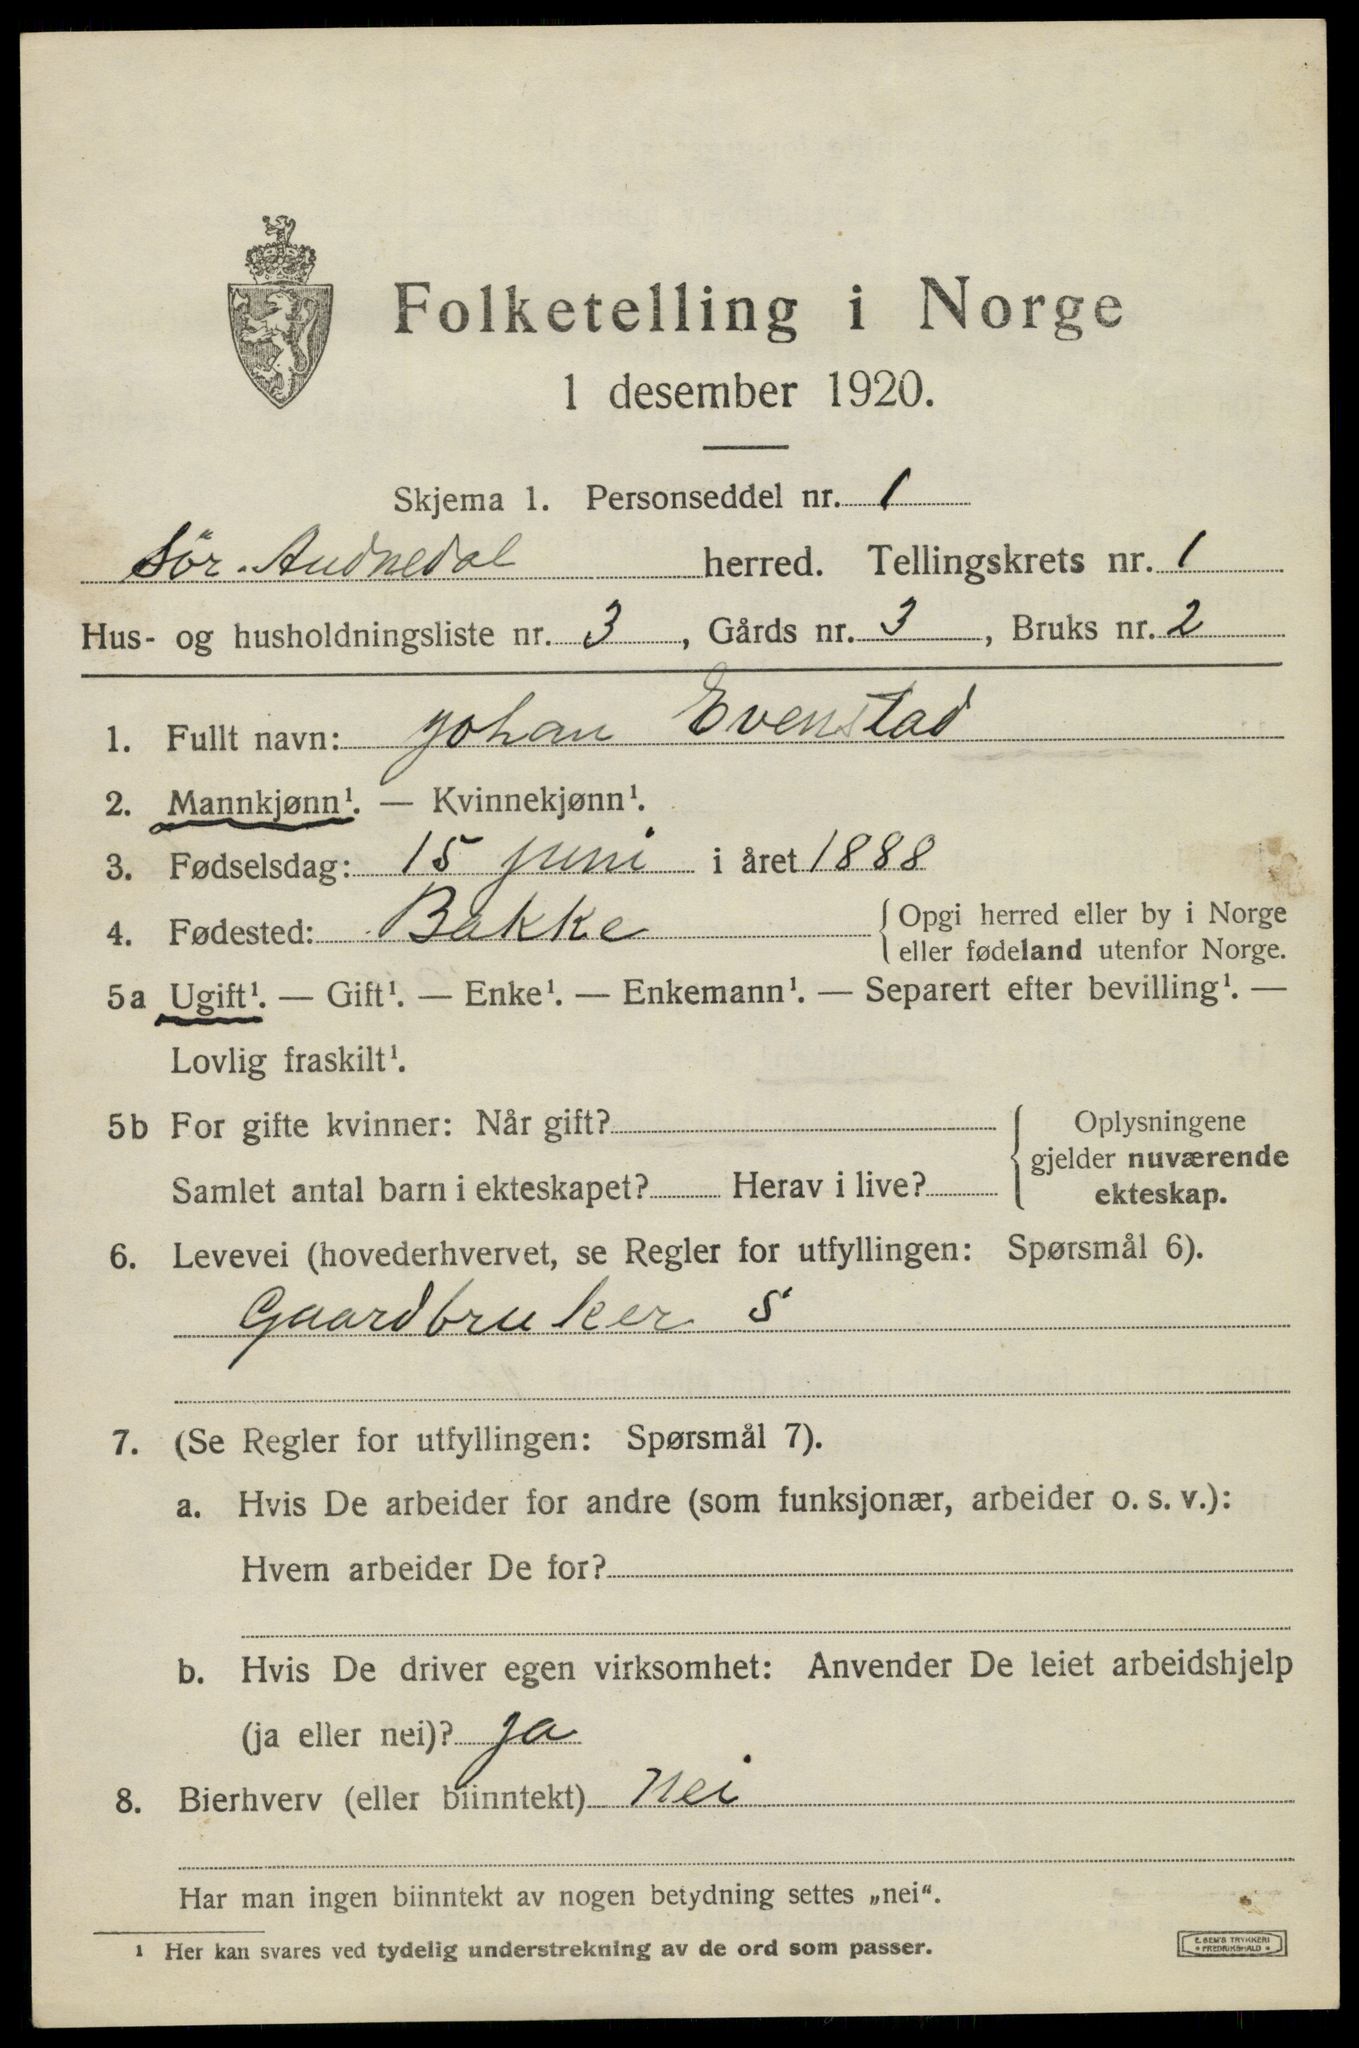 Folketelling i Norge
1 desember 1920.
Skjema 1. Personseddel nr. 1
Sör. Audnedal herred. Tellingskrets nr. 1
Hus- og husholdningsliste nr. 3, Gårds nr. 3, Bruks nr. 2
1. Fullt navn: Johan Evenstad
2. Mannkjønn¹. — Kvinnekjønn¹.
3. Fødselsdag: 15 juni i året 1888
4. Fødested: Bakke { Opgi herred eller by i Norge
eller fødeland utenfor Norge.
5a Ugift¹. — Gift¹. — Enke¹. — Enkemann¹. — Separert efter bevilling¹. —
Lovlig fraskilt¹.
5b For gifte kvinner: Når gift? { Oplysningene
gjelder nuværende
Samlet antal barn i ekteskapet? Herav i live? ekteskap.
6. Levevei (hovederhvervet, se Regler for utfyllingen: Spørsmål 6).
Gaardbruker S
7. (Se Regler for utfyllingen: Spørsmål 7).
a. Hvis De arbeider for andre (som funksjonær, arbeider o. s. v.):
Hvem arbeider De for?
b. Hvis De driver egen virksomhet: Anvender De leiet arbeidshjelp
(ja eller nei)? ja
8. Bierhverv (eller biinntekt) Nei
Har man ingen biinntekt av nogen betydning settes „nei“.
¹ Her kan svares ved tydelig understrekning av de ord som passer.
E. SEM'S TRYKKERI
* FREDRIKSHALD *